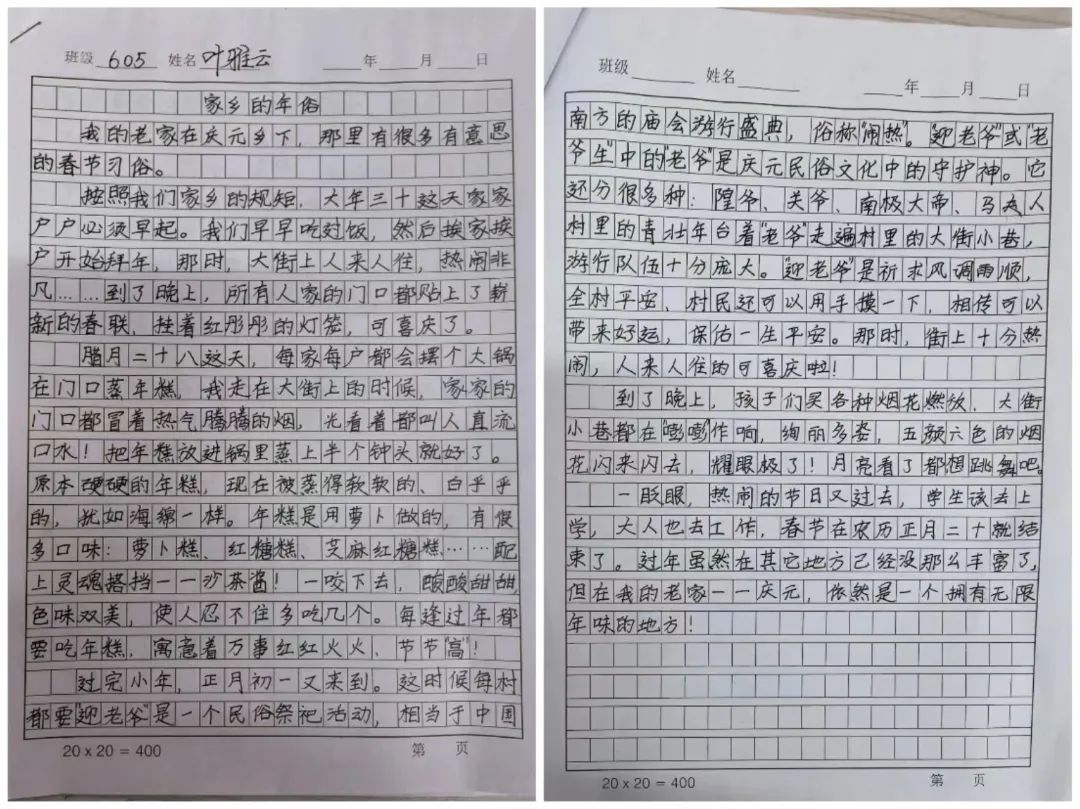 班级 605 姓名 叶雅云 年 月 日
家乡的年俗
我的老家在庆元乡下，那里有很多有意思
的春节习俗。
按照我们家乡的规矩，大年三十这天家家
户户必须早起。我们早早吃过饭，然后挨家挨
户开始拜年，那时，大街上人来人往，热闹非
凡……到了晚上，所有人家的门口都贴上了崭
新的春联，挂着红彤彤的灯笼，可喜庆了。
腊月二十八这天，每家每户都会摆个大锅
在门口蒸年糕。我走在大街上的时候，家家的
门口都冒着热气腾腾的烟，光看着都叫人直流
口水！把年糕放进锅里蒸上半个钟头就好了。
原本硬硬的年糕，现在被蒸得软软的、白乎乎
的，犹如海绵一样。年糕是用萝卜做的，有很
多口味：萝卜糕、红糖糕、芝麻红糖糕……配
上灵魂搭挡——沙茶酱！一咬下去，酸酸甜甜，
色味双美，使人忍不住多吃几个。每逢过年都
要吃年糕，寓意着万事红红火火、节节“高”！
过完小年，正月初一又来到。这时候每村
都要“迎老爷”是一个民俗祭祀活动，相当于中国
20 x 20 = 400 第 页
班级 姓名 年 月 日
南方的庙会游行盛典，俗称“闹热”。“迎老爷”或“老
爷生”中的“老爷”是庆元民俗文化中的守护神。它
还分很多种：隍爷、关爷、南极大帝、马夫人
村里的青壮年台着“老爷”走遍村里的大街小巷，
游行队伍十分庞大。“迎老爷”是祈求风调雨顺，
全村平安、村民还可以用手摸一下，相传可以
带来好运，保佑一生平安。那时，街上十分热
闹，人来人往的可喜庆啦！
到了晚上，孩子们买各种烟花燃放，大街
小巷都在“嘭嘭”作响，绚丽多姿，五颜六色的烟
花闪来闪去，耀眼极了！月亮看了都想跳舞吧。
一眨眼，热闹的节日又过去，学生该去上
学，大人也去工作，春节在农历正月二十就结
束了。过年虽然在其它地方已经没那么丰富了，
但在我的老家——庆元，依然是一个拥有无限
年味的地方！
20 x 20 = 400 第 页